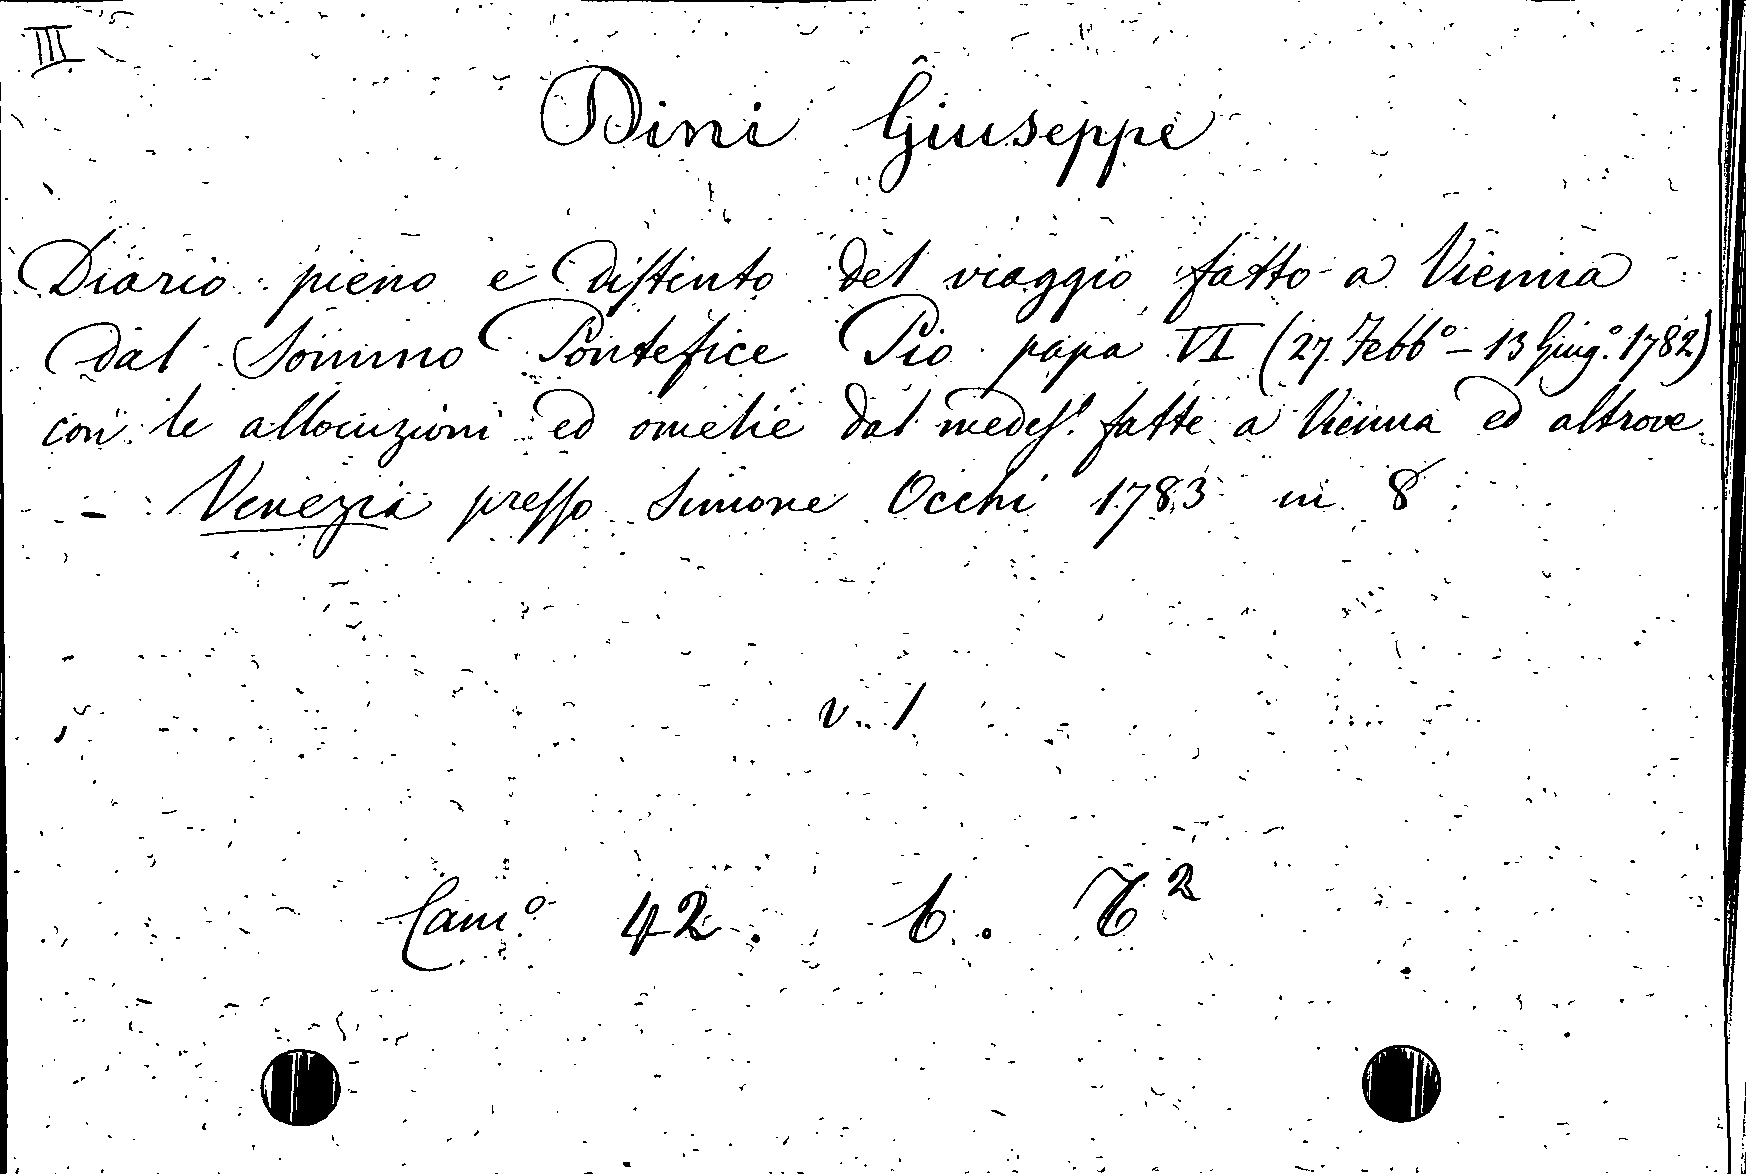 III
Dini Giuseppe
Diario pieno e distinto del viaggio fatto a Vienna
dal Sommo Pontefice Pio papa VI (27. Febb° - 13 Giug.° 1782)
con le allocuzioni ed omelie dal medes.° fatte a Vienna ed altrove
- Venezia presso Simone Occhi 1783 in 8
v. 1
Cam° 42. b.